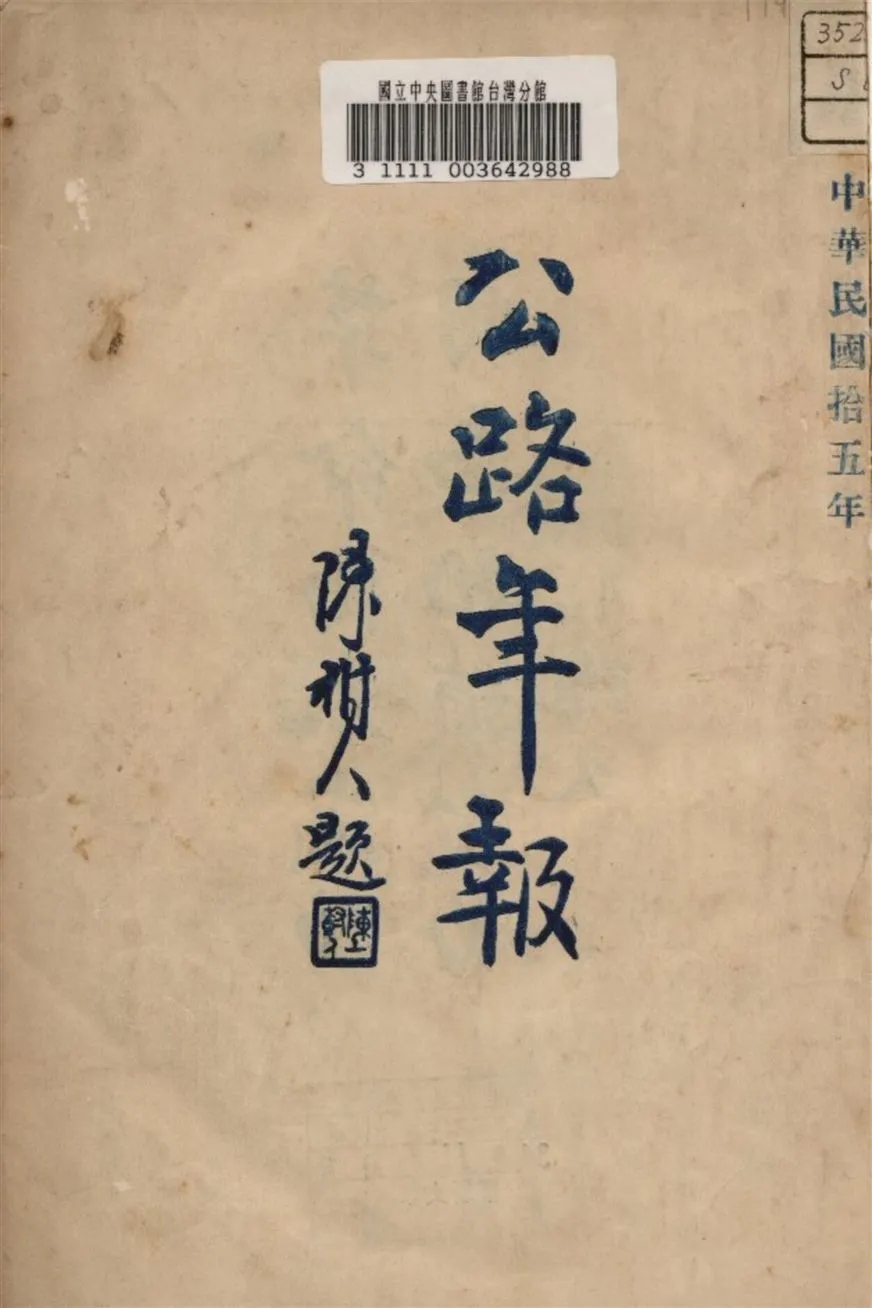 352
S
國立中央圖書館台灣分館
3 1111 003642988
中華民國拾五年
公路年報
陳樹人題